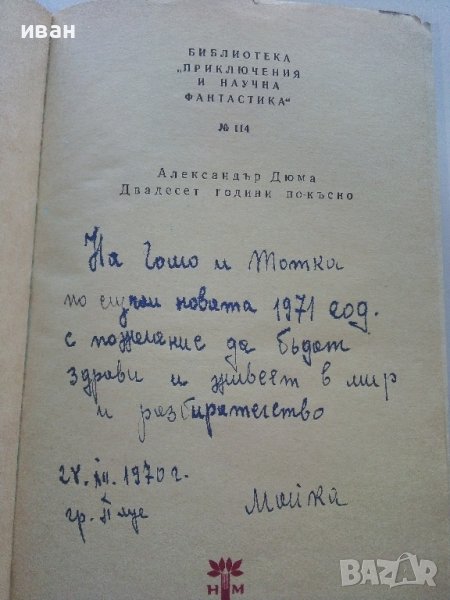 иван
БИБЛИОТЕКА
„ПРИКЛЮЧЕНИЯ
И НАУЧНА
ФАНТАСТИКА“
№ 114
Александър Дюма
Двадесет години по-късно
На Гошо и Тотка
по случай новата 1971 год.
с пожелание да бъдат
здрави и живеят в мир
и разбирателство
1970 г.
гр.
Майка
Н М
BAZAR